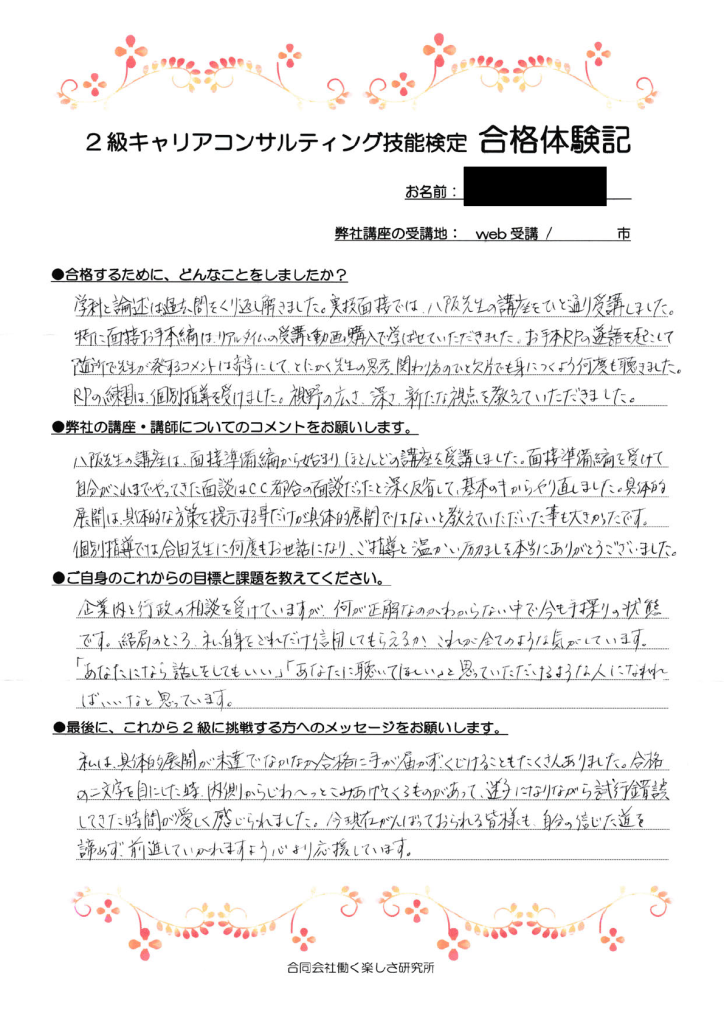 2級キャリアコンサルティング技能検定 合格体験記
お名前：
弊社講座の受講地： web受講 / 市
●合格するために、どんなことをしましたか？
学科と論述は過去問をくり返し解きました。実技面接では、八阪先生の講座をひと通り受講しました。
特に面接お手本編は、リアルタイムの受講と動画購入で学ばせていただきました。お手本RPの逐語を起こして
随所で先生が発するコメントは赤字にして、とにかく先生の思考、関わり方のひと欠片でも身につくよう何度も聴きました。
RPの練習は、個別指導を受けました。視野の広さ、深さ、新たな視点を教えていただきました。
●弊社の講座・講師についてのコメントをお願いします。
八阪先生の講座は、面接準備編から始まりほとんどの講座を受講しました。面接準備編を受けて
自分がこれまでやってきた面談はCC都合の面談だったと深く反省して、基本のキからやり直しました。具体的
展開は、具体的な方策を提示する事だけが具体的展開ではないと教えていただいた事も大きかったです。
個別指導では合田先生に何度もお世話になり、ご指導と温かい励ましを本当にありがとうございました。
●ご自身のこれからの目標と課題を教えてください。
企業内と行政の相談を受けていますが、何が正解なのかわからない中で今も手探りの状態
です。結局のところ、私自身をどれだけ信用してもらえるか、これが全てのような気がしています。
「あなたになら話しをしてもいい」「あなたに聴いてほしい」と思っていただけるような人になれれ
ばいいなと思っています。
●最後に、これから2級に挑戦する方へのメッセージをお願いします。
私は、具体的展開が未達でなかなか合格に手が届かず、くじけることもたくさんありました。合格
の二文字を目にした時、内側からじわ〜っとこみあげてくるものがあって、迷子になりながら試行錯誤
してきた時間が愛しく感じられました。今現在がんばっておられる皆様も、自分の信じた道を
諦めず、前進していかれますよう心より応援しています。
合同会社働く楽しさ研究所